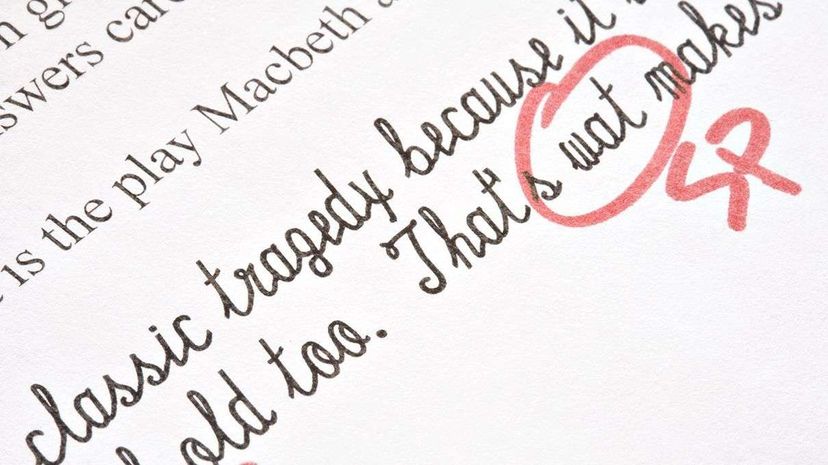 is the play Macbeth
classic tragedy because it
old too. That's wat makes
SP